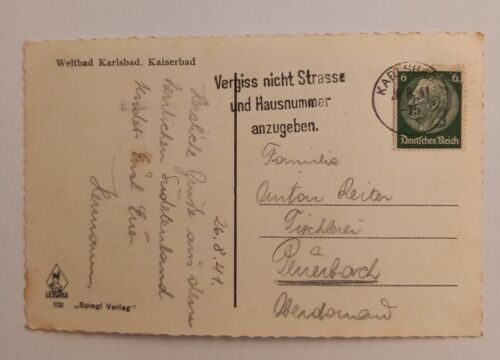 Weltbad Karlsbad. Kaiserbad
Vergiss nicht Strasse
und Hausnummer
anzugeben.
KARLSBAD
6 6
Deutsches Reich
26.8.41.
Herzliche Grüße aus dem
herrlichen Sudetenland
sendet Euch Euer
Hermann
Familie
Anton Reiter
Tischlerei
Penerbach
Oberdonau
LEPOKA
102
"Spiegl Verlag"